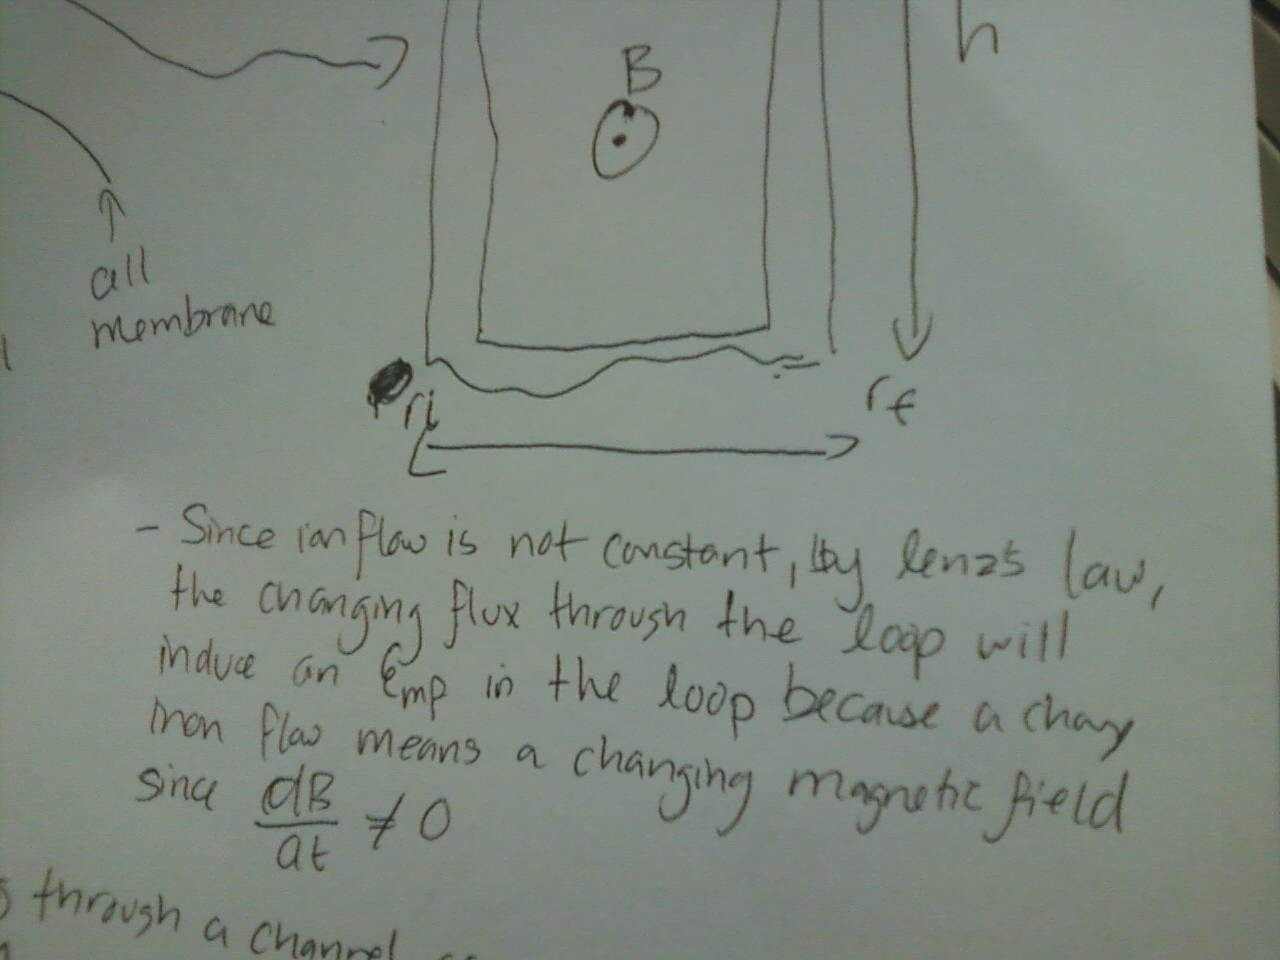 B
h
all
membrane
ri
rf
- Since ion flow is not constant, by lenzs law,
the changing flux through the loop will
induce an Emf in the loop because a chang
iron flow means a changing magnetic field
since dB/dt ≠ 0
through a channel